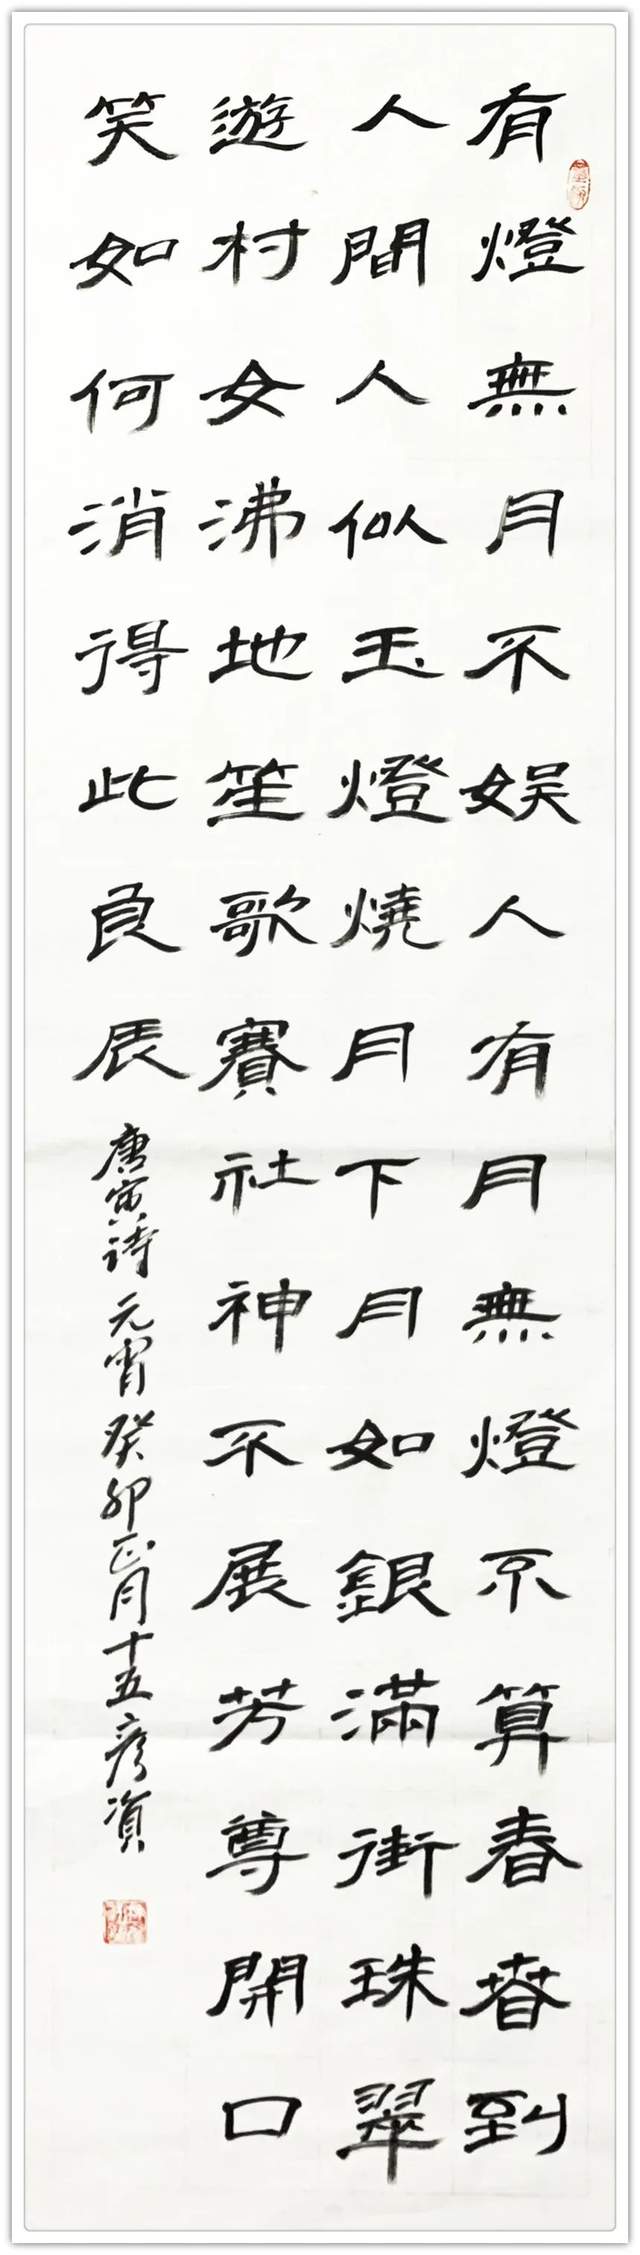 有燈無月不娱人有月無燈不算春春到
人間人似玉燈燒月下月如銀滿街珠翠
遊村女沸地笙歌賽社神不展芳尊開口
笑如何消得此良辰
唐寅詩元宵癸卯正月十五彦